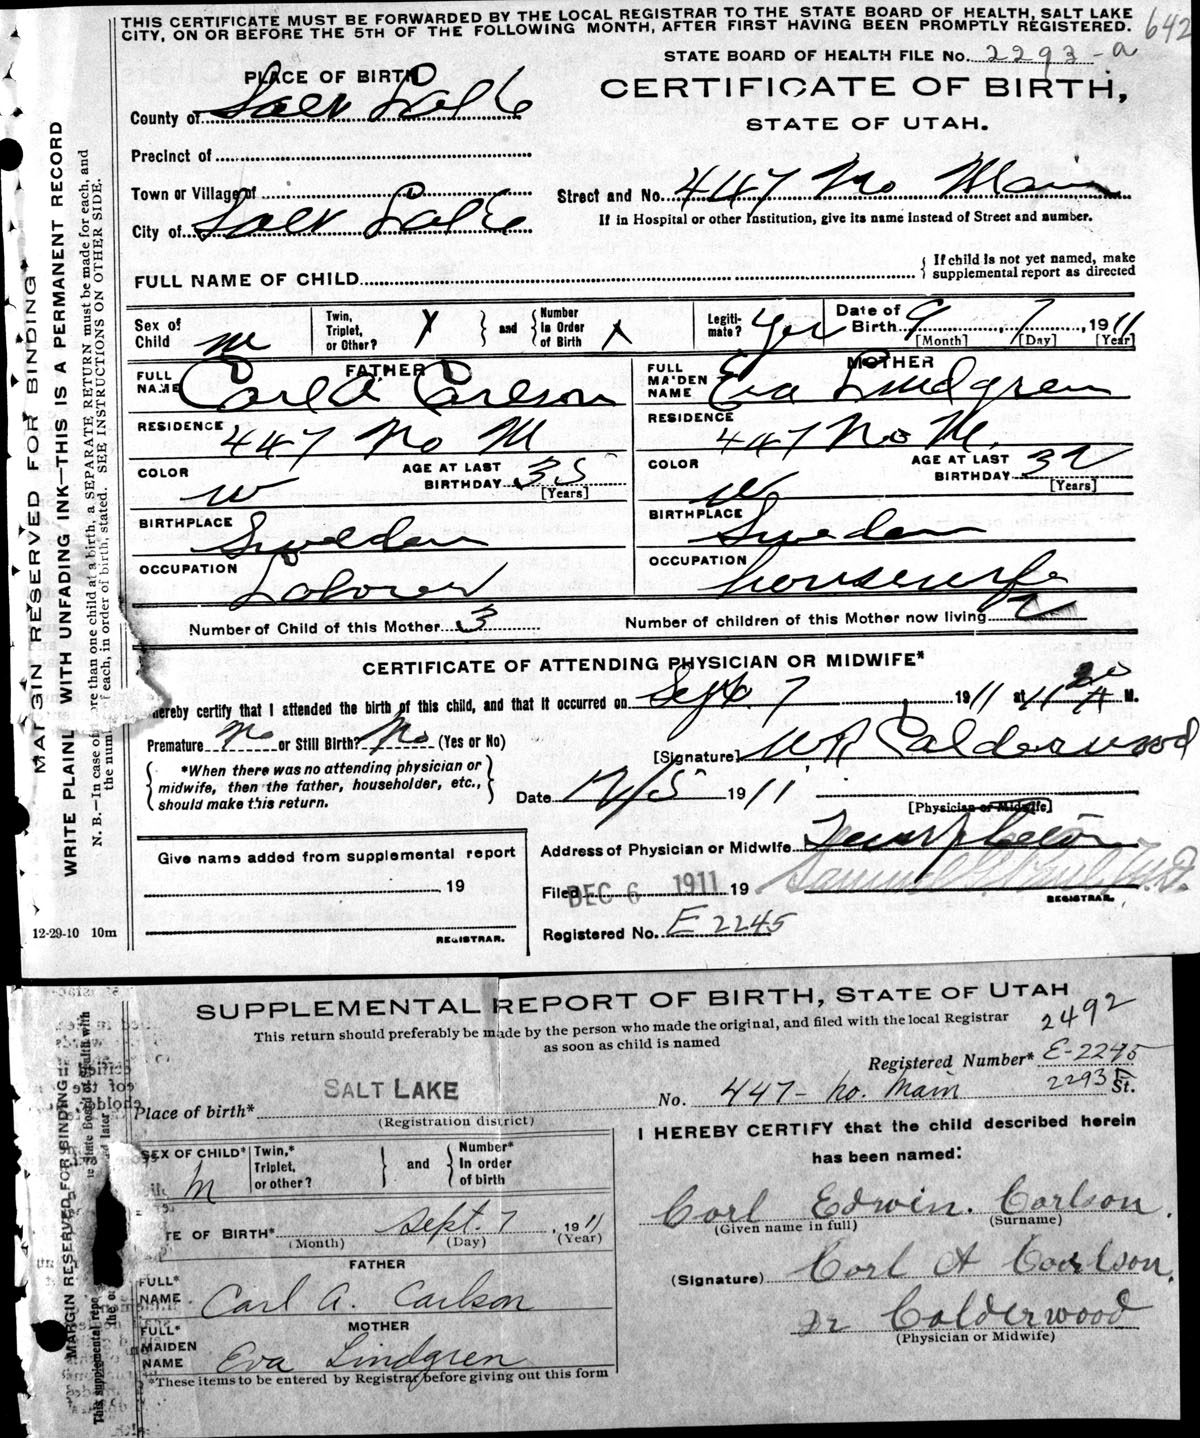 THIS CERTIFICATE MUST BE FORWARDED BY THE LOCAL REGISTRAR TO THE STATE BOARD OF HEALTH, SALT LAKE
CITY, ON OR BEFORE THE 5TH OF THE FOLLOWING MONTH, AFTER FIRST HAVING BEEN PROMPTLY REGISTERED.
642
STATE BOARD OF HEALTH FILE No. 2293-a
PLACE OF BIRTH
CERTIFICATE OF BIRTH,
STATE OF UTAH.
County of Salt Lake
Precinct of
Town or Village of
Street and No. 447 No Main
City of Salt Lake
If in Hospital or other Institution, give its name instead of Street and number.
FULL NAME OF CHILD
If child is not yet named, make
supplemental report as directed
Sex of Child m
Twin, Triplet, or Other?
and
Number in Order of Birth
Legiti-mate? Yes
Date of Birth 9, 7, 1911
[Month] [Day] [Year]
FATHER
FULL NAME Carl A Carlson
RESIDENCE 447 No M
COLOR W
AGE AT LAST BIRTHDAY 35
[Years]
BIRTHPLACE Sweden
OCCUPATION Laborer
MOTHER
FULL MAIDEN NAME Eva Lindgren
RESIDENCE 447 No M.
COLOR W
AGE AT LAST BIRTHDAY 32
[Years]
BIRTHPLACE Sweden
OCCUPATION housewife
Number of Child of this Mother 3
Number of children of this Mother now living 2
CERTIFICATE OF ATTENDING PHYSICIAN OR MIDWIFE*
hereby certify that I attended the birth of this child, and that it occurred on Sept. 7 1911 at 11 20 A M.
Premature No or Still Birth? No (Yes or No)
[Signature] W R Calderwood
*When there was no attending physician or
midwife, then the father, householder, etc.,
should make this return.
Date 12/5 1911
[Physician or Midwife]
Give name added from supplemental report
19
REGISTRAR.
Address of Physician or Midwife Templeton
Filed DEC 6 1911 19
REGISTRAR.
Registered No. E 2245
12-29-10 10m
MARGIN RESERVED FOR BINDING
WRITE PLAINL WITH UNFADING INK—THIS IS A PERMANENT RECORD
N. B.—In case of more than one child at a birth, a SEPARATE RETURN must be made for each, and
the num of each, in order of birth, stated. SEE INSTRUCTIONS ON OTHER SIDE.
SUPPLEMENTAL REPORT OF BIRTH, STATE OF UTAH
This return should preferably be made by the person who made the original, and filed with the local Registrar
as soon as child is named
2492
Registered Number* E-2245
2293
SALT LAKE
Place of birth*
(Registration district)
No. 447- No. Main St.
SEX OF CHILD* M
Twin,* Triplet, or other?
and
Number* In order of birth
TE OF BIRTH* Sept. 7, 1911
(Month) (Day) (Year)
FATHER
FULL* NAME Carl A. Carlson
MOTHER
FULL* MAIDEN NAME Eva Lindgren
*These items to be entered by Registrar before giving out this form
I HEREBY CERTIFY that the child described herein
has been named:
Carl Edwin. Carlson.
(Given name in full) (Surname)
(Signature) Carl A Carlson.
Dr Calderwood
(Physician or Midwife)
MARGIN RESERVED FOR BINDING
This supplemental repo